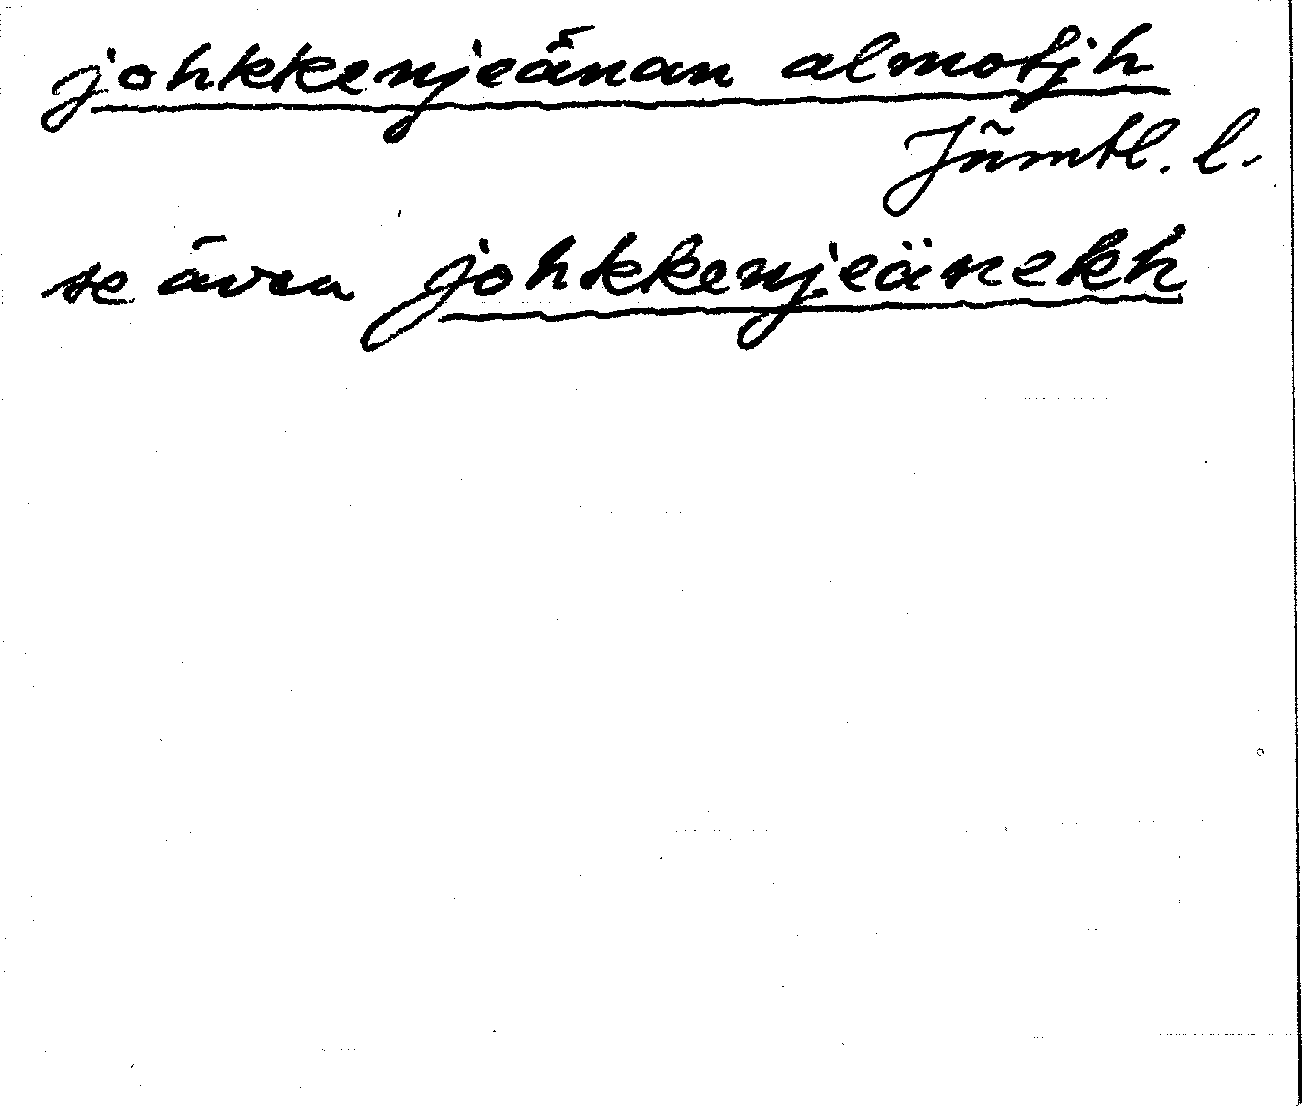 johkkenjeänan almotjh
Jämtl. l.
se även johkkenjeänekh